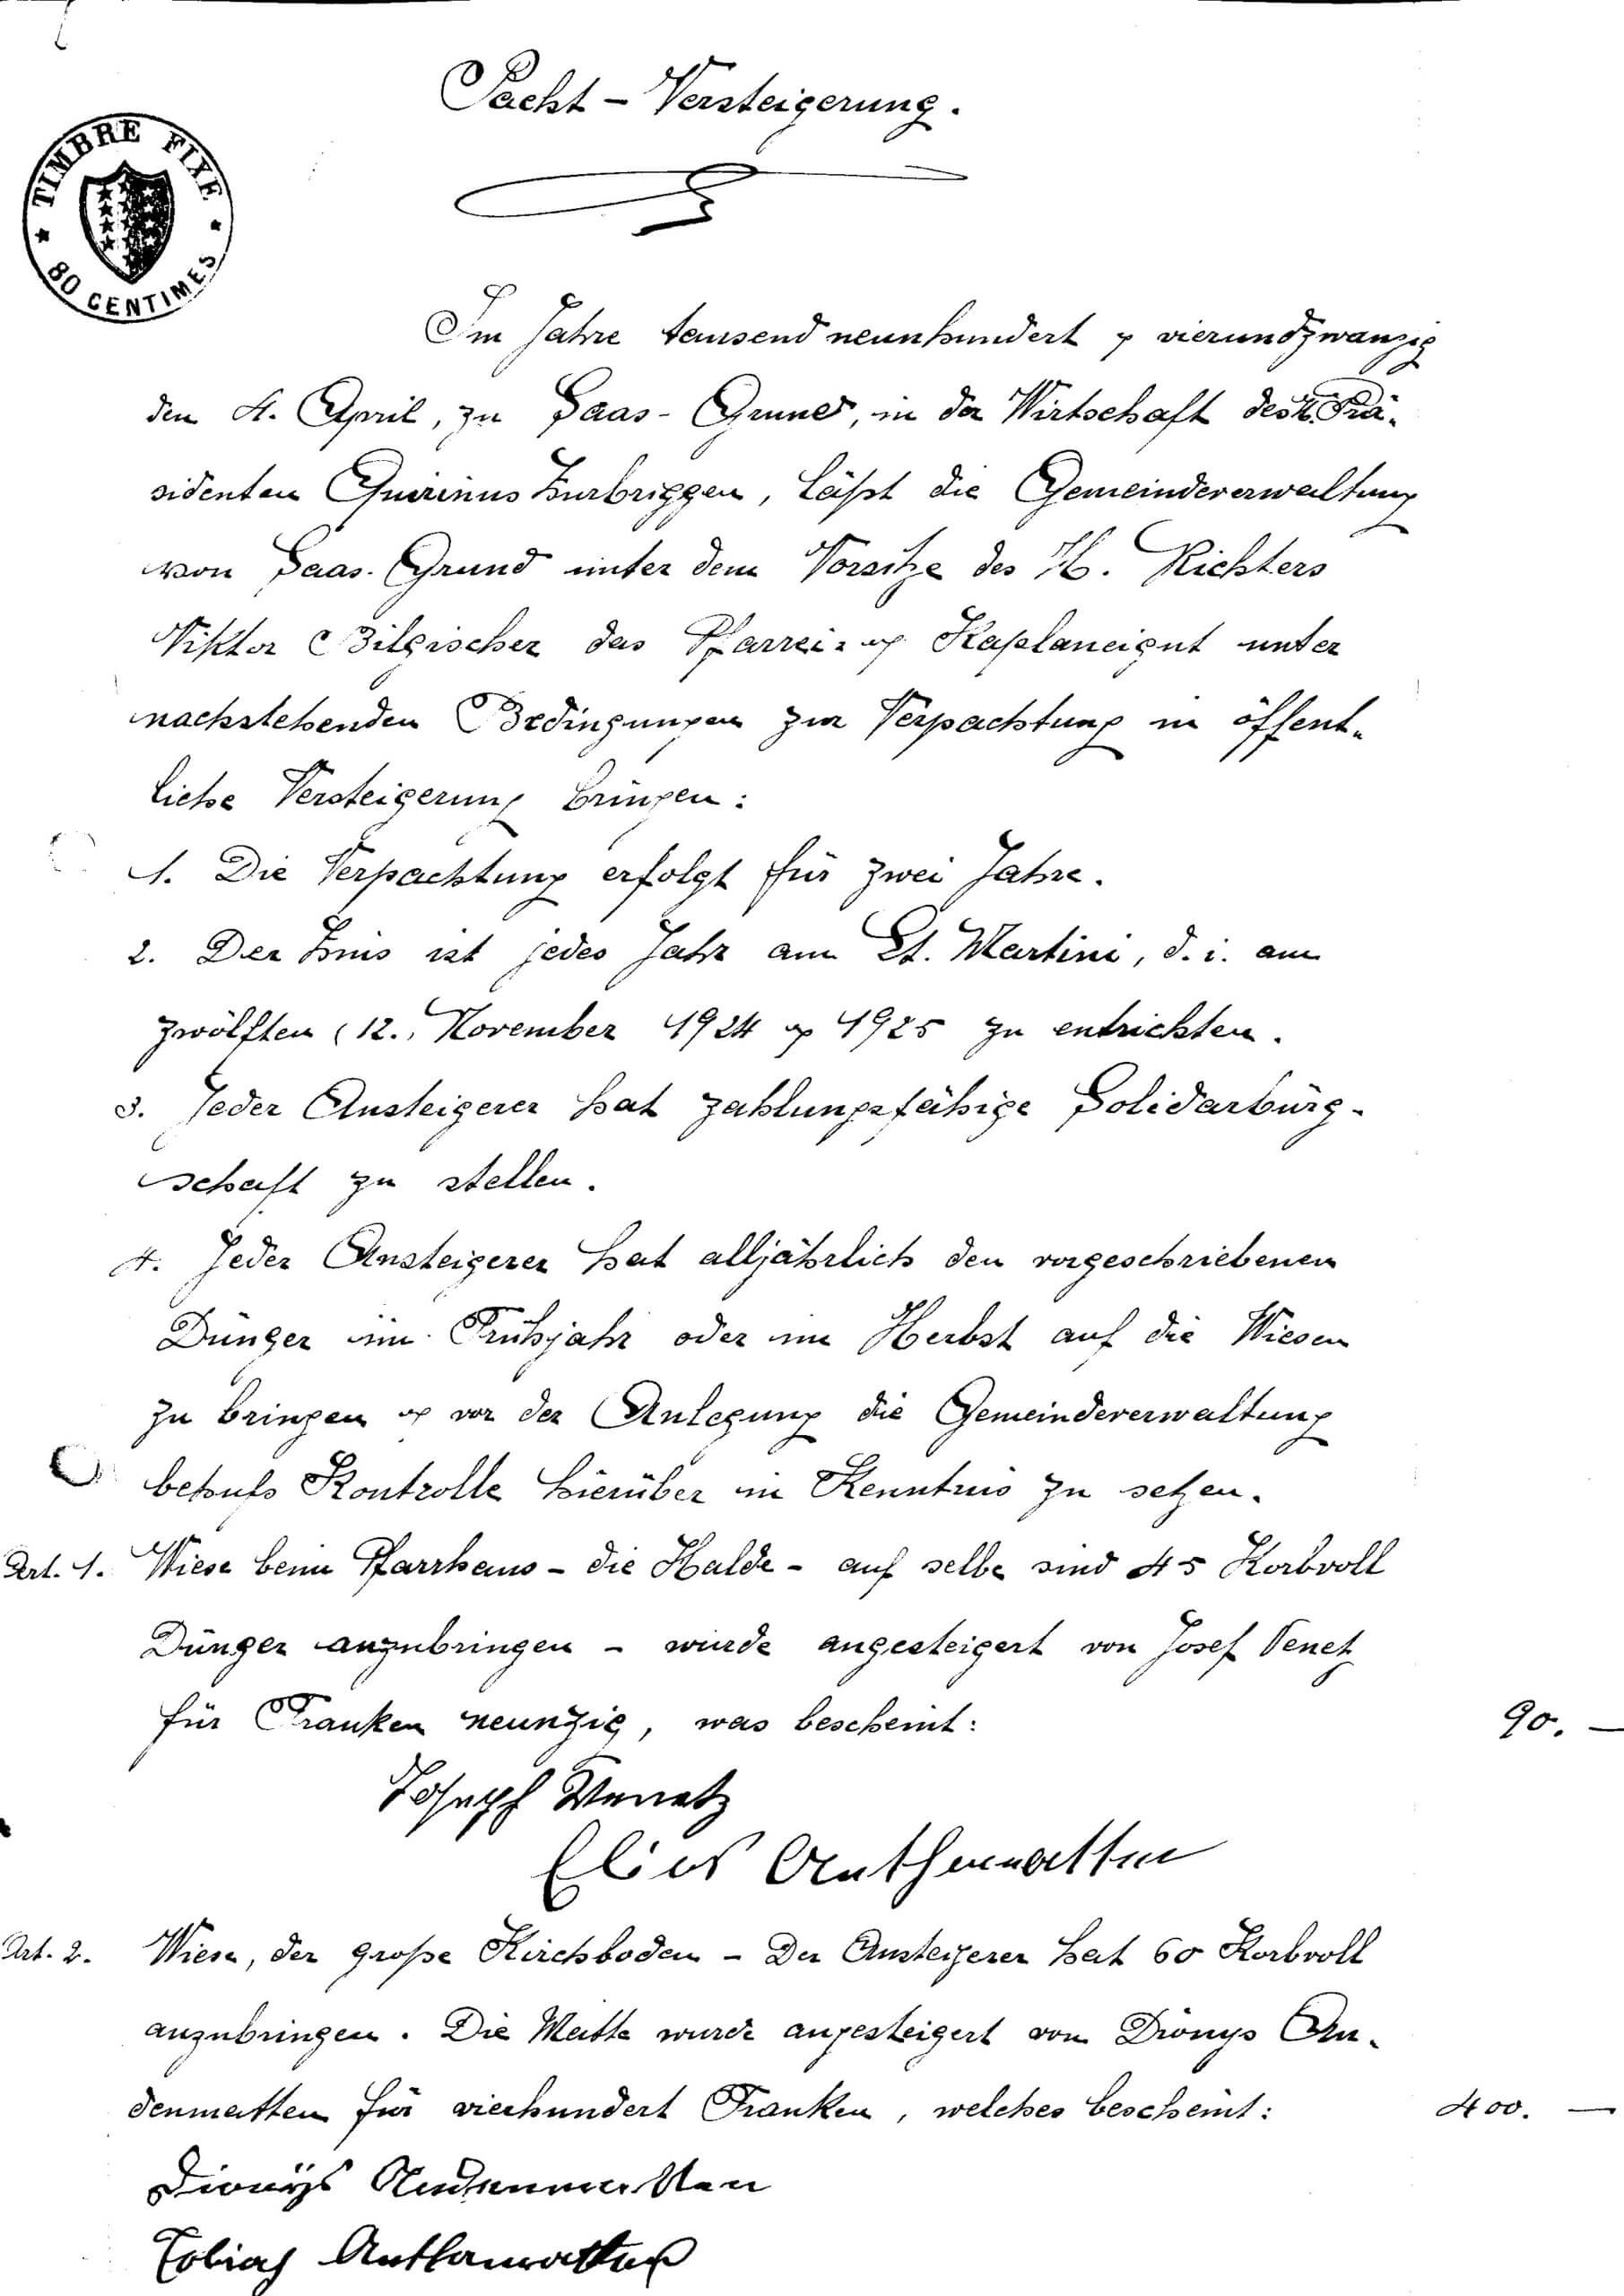 Pacht-Versteigerung.
TIMBRE FIXE
80 CENTIMES
Im Jahre tausend neunhundert & vierundzwanzig
den 4. April, zu Saas-Grund, in der Wirtschaft des H. Prä-
sidenten Quirinus Zurbriggen, läßt die Gemeindeverwaltung
von Saas-Grund unter dem Vorsitze des H. Richters
Viktor Bilgischer das Pfarrei- & Kaplaneigut unter
nachstehenden Bedingungen zur Verpachtung in öffent-
liche Versteigerung bringen:
1. Die Verpachtung erfolgt für zwei Jahre.
2. Der Zins ist jedes Jahr am St. Martini, d. i. am
zwölften (12.) November 1924 & 1925 zu entrichten.
3. Jeder Ansteigerer hat zahlungsfähige Solidarbürg-
schaft zu stellen.
4. Jeder Ansteigerer hat alljährlich den vorgeschriebenen
Dünger im Frühjahr oder im Herbst auf die Wiesen
zu bringen & vor der Anlegung die Gemeindeverwaltung
behufs Kontrolle hierüber in Kenntnis zu setzen.
Art. 1. Wiese beim Pfarrhaus - die Halde - auf selbe sind 45 Korbvoll
Dünger anzubringen - wurde angesteigert von Josef Venetz
für Franken neunzig, was bescheint: 90. —
Joseph Venetz
Elias Anthamatten
Art. 2. Wiese, der große Kirchboden - Der Ansteigerer hat 60 Korbvoll
anzubringen. Die Matte wurde angesteigert von Dionys An-
denmatten für vierhundert Franken, welches bescheint: 400. —
Dionys Andenmatten
Tobias Anthamatten